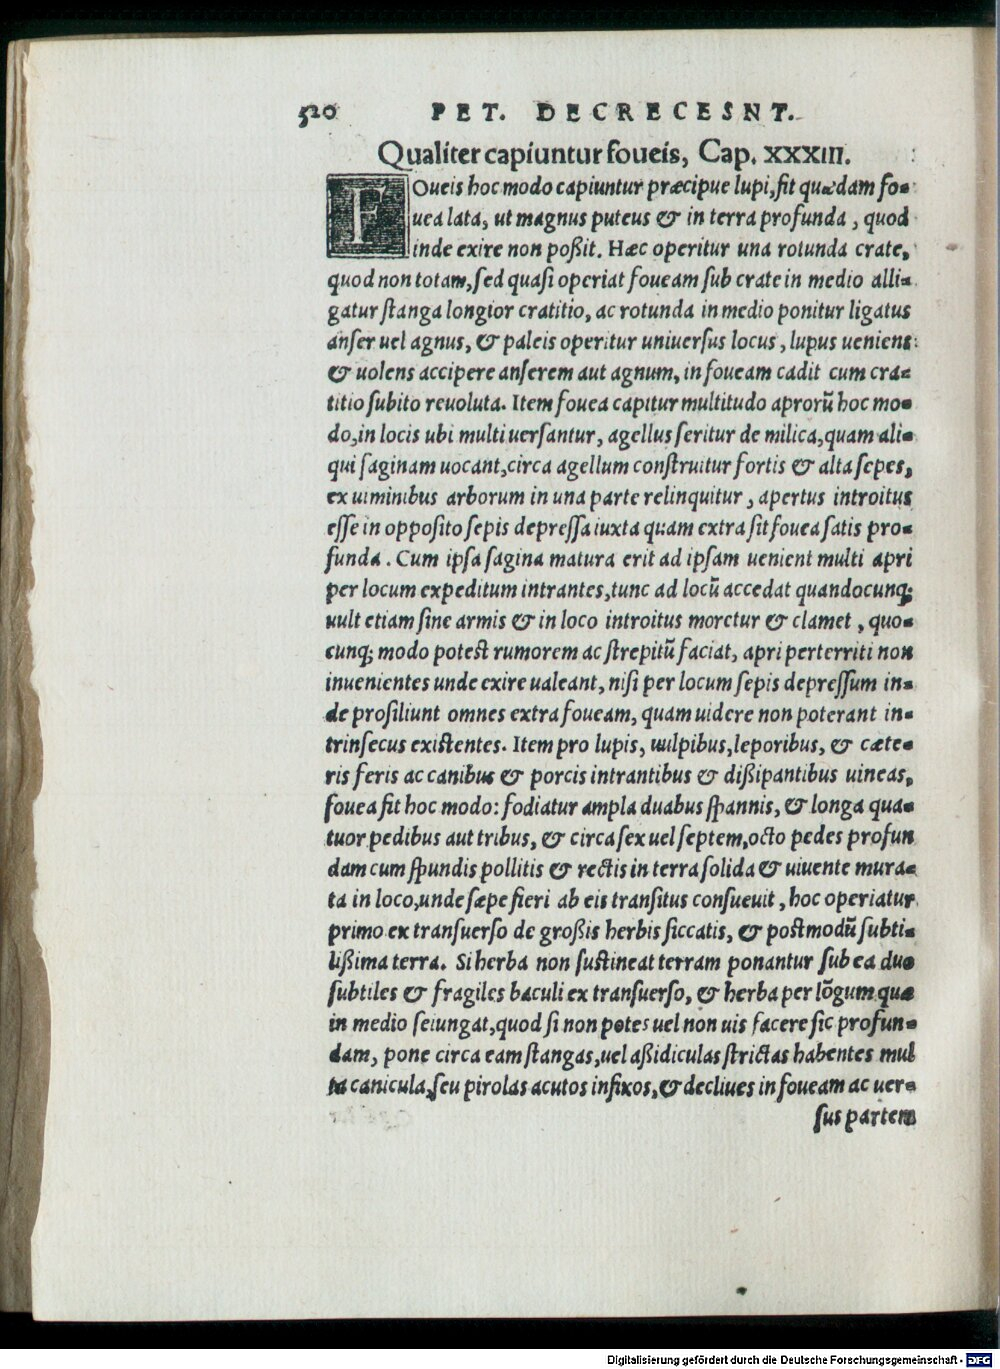 520 PET. DECRECESNT.
Qualiter capiuntur foueis, Cap. XXXIII.
FOueis hoc modo capiuntur præcipue lupi, fit quædam fo-
uea lata, ut magnus puteus & in terra profunda, quod
inde exire non poßit. Hæc operitur una rotunda crate,
quod non totam, sed quasi operiat foueam sub crate in medio alli-
gatur stanga longior cratitio, ac rotunda in medio ponitur ligatus
anser uel agnus, & paleis operitur uniuersus locus, lupus ueniens
& uolens accipere anserem aut agnum, in foueam cadit cum cra-
titio subito reuoluta. Item fouea capitur multitudo aprorũ hoc mo-
do, in locis ubi multi uersantur, agellus seritur de milica, quam ali-
qui saginam uocant, circa agellum construitur fortis & alta sepes,
ex uiminibus arborum in una parte relinquitur, apertus introitus
esse in opposito sepis depressa iuxta quam extra sit fouea satis pro-
funda. Cum ipsa sagina matura erit ad ipsam uenient multi apri
per locum expeditum intrantes, tunc ad locũ accedat quandocunq;
uult etiam sine armis & in loco introitus moretur & clamet, quo-
cunq; modo potest rumorem ac strepitũ faciat, apri perterriti non
inuenientes unde exire ualeant, nisi per locum sepis depressum in-
de prosiliunt omnes extra foueam, quam uidere non poterant in-
trinsecus existentes. Item pro lupis, uulpibus, leporibus, & cæte-
ris feris ac canibus & porcis intrantibus & dißipantibus uineas,
fouea fit hoc modo: fodiatur ampla duabus spannis, & longa qua-
tuor pedibus aut tribus, & circa sex uel septem, octo pedes profun
dam cum spundis pollitis & rectis in terra solida & uiuente mura-
ta in loco, unde sæpe fieri ab eis transitus consueuit, hoc operiatur
primo ex transuerso de großis herbis siccatis, & postmodũ subti-
lißima terra. Si herba non sustineat terram ponantur sub ea duo
subtiles & fragiles baculi ex transuerso, & herba per lõgum quæ
in medio seiungat, quod si non potes uel non uis facere sic profun-
dam, pone circa eam stangas, uel aßidiculas strictas habentes mul
ta canicula, seu pirolas acutos infixos, & decliues in foueam ac uer-
sus partem
Digitalisierung gefördert durch die Deutsche Forschungsgemeinschaft - DFG